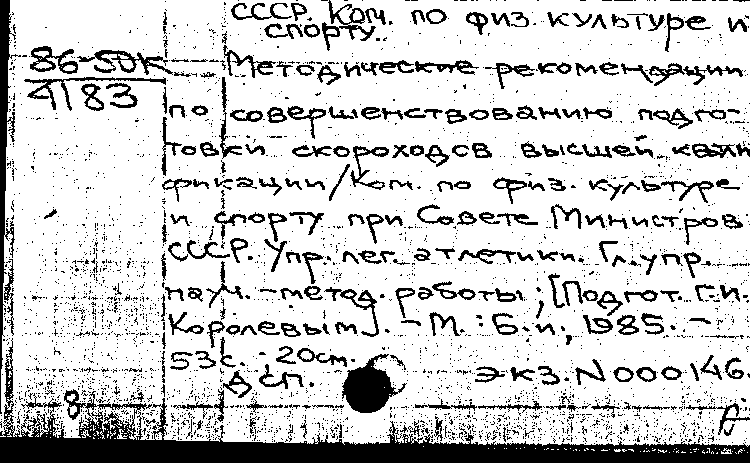 СССР. Ком. по физ. культуре и
спорту.
86-50к
4183
Методические рекомендации
по совершенствованию подго-
товки скороходов высшей квали
фикации/Ком. по физ. культуре
и спорту при Совете Министров
СССР. Упр. лег. атлетики. Гл. упр.
науч.-метод. работы; [Подгот. Г.И.
Королевым]. - М.: Б.и., 1985. -
53с.; 20см.
Дсп. Экз. N 000146.
8